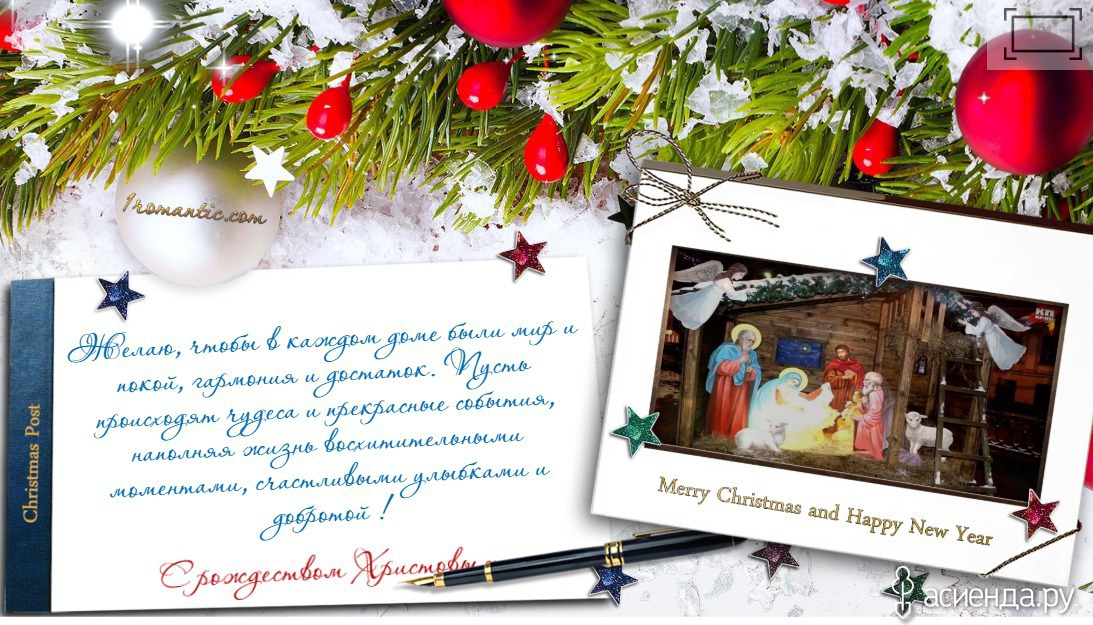 1romantic.com
Желаю, чтобы в каждом доме были мир и
покой, гармония и достаток. Пусть
происходят чудеса и прекрасные события,
наполняя жизнь восхитительными
моментами, счастливыми улыбками и
добротой !
С рождеством Христовы
Christmas Post
КП
Merry Christmas and Happy New Year
асиенда.ру